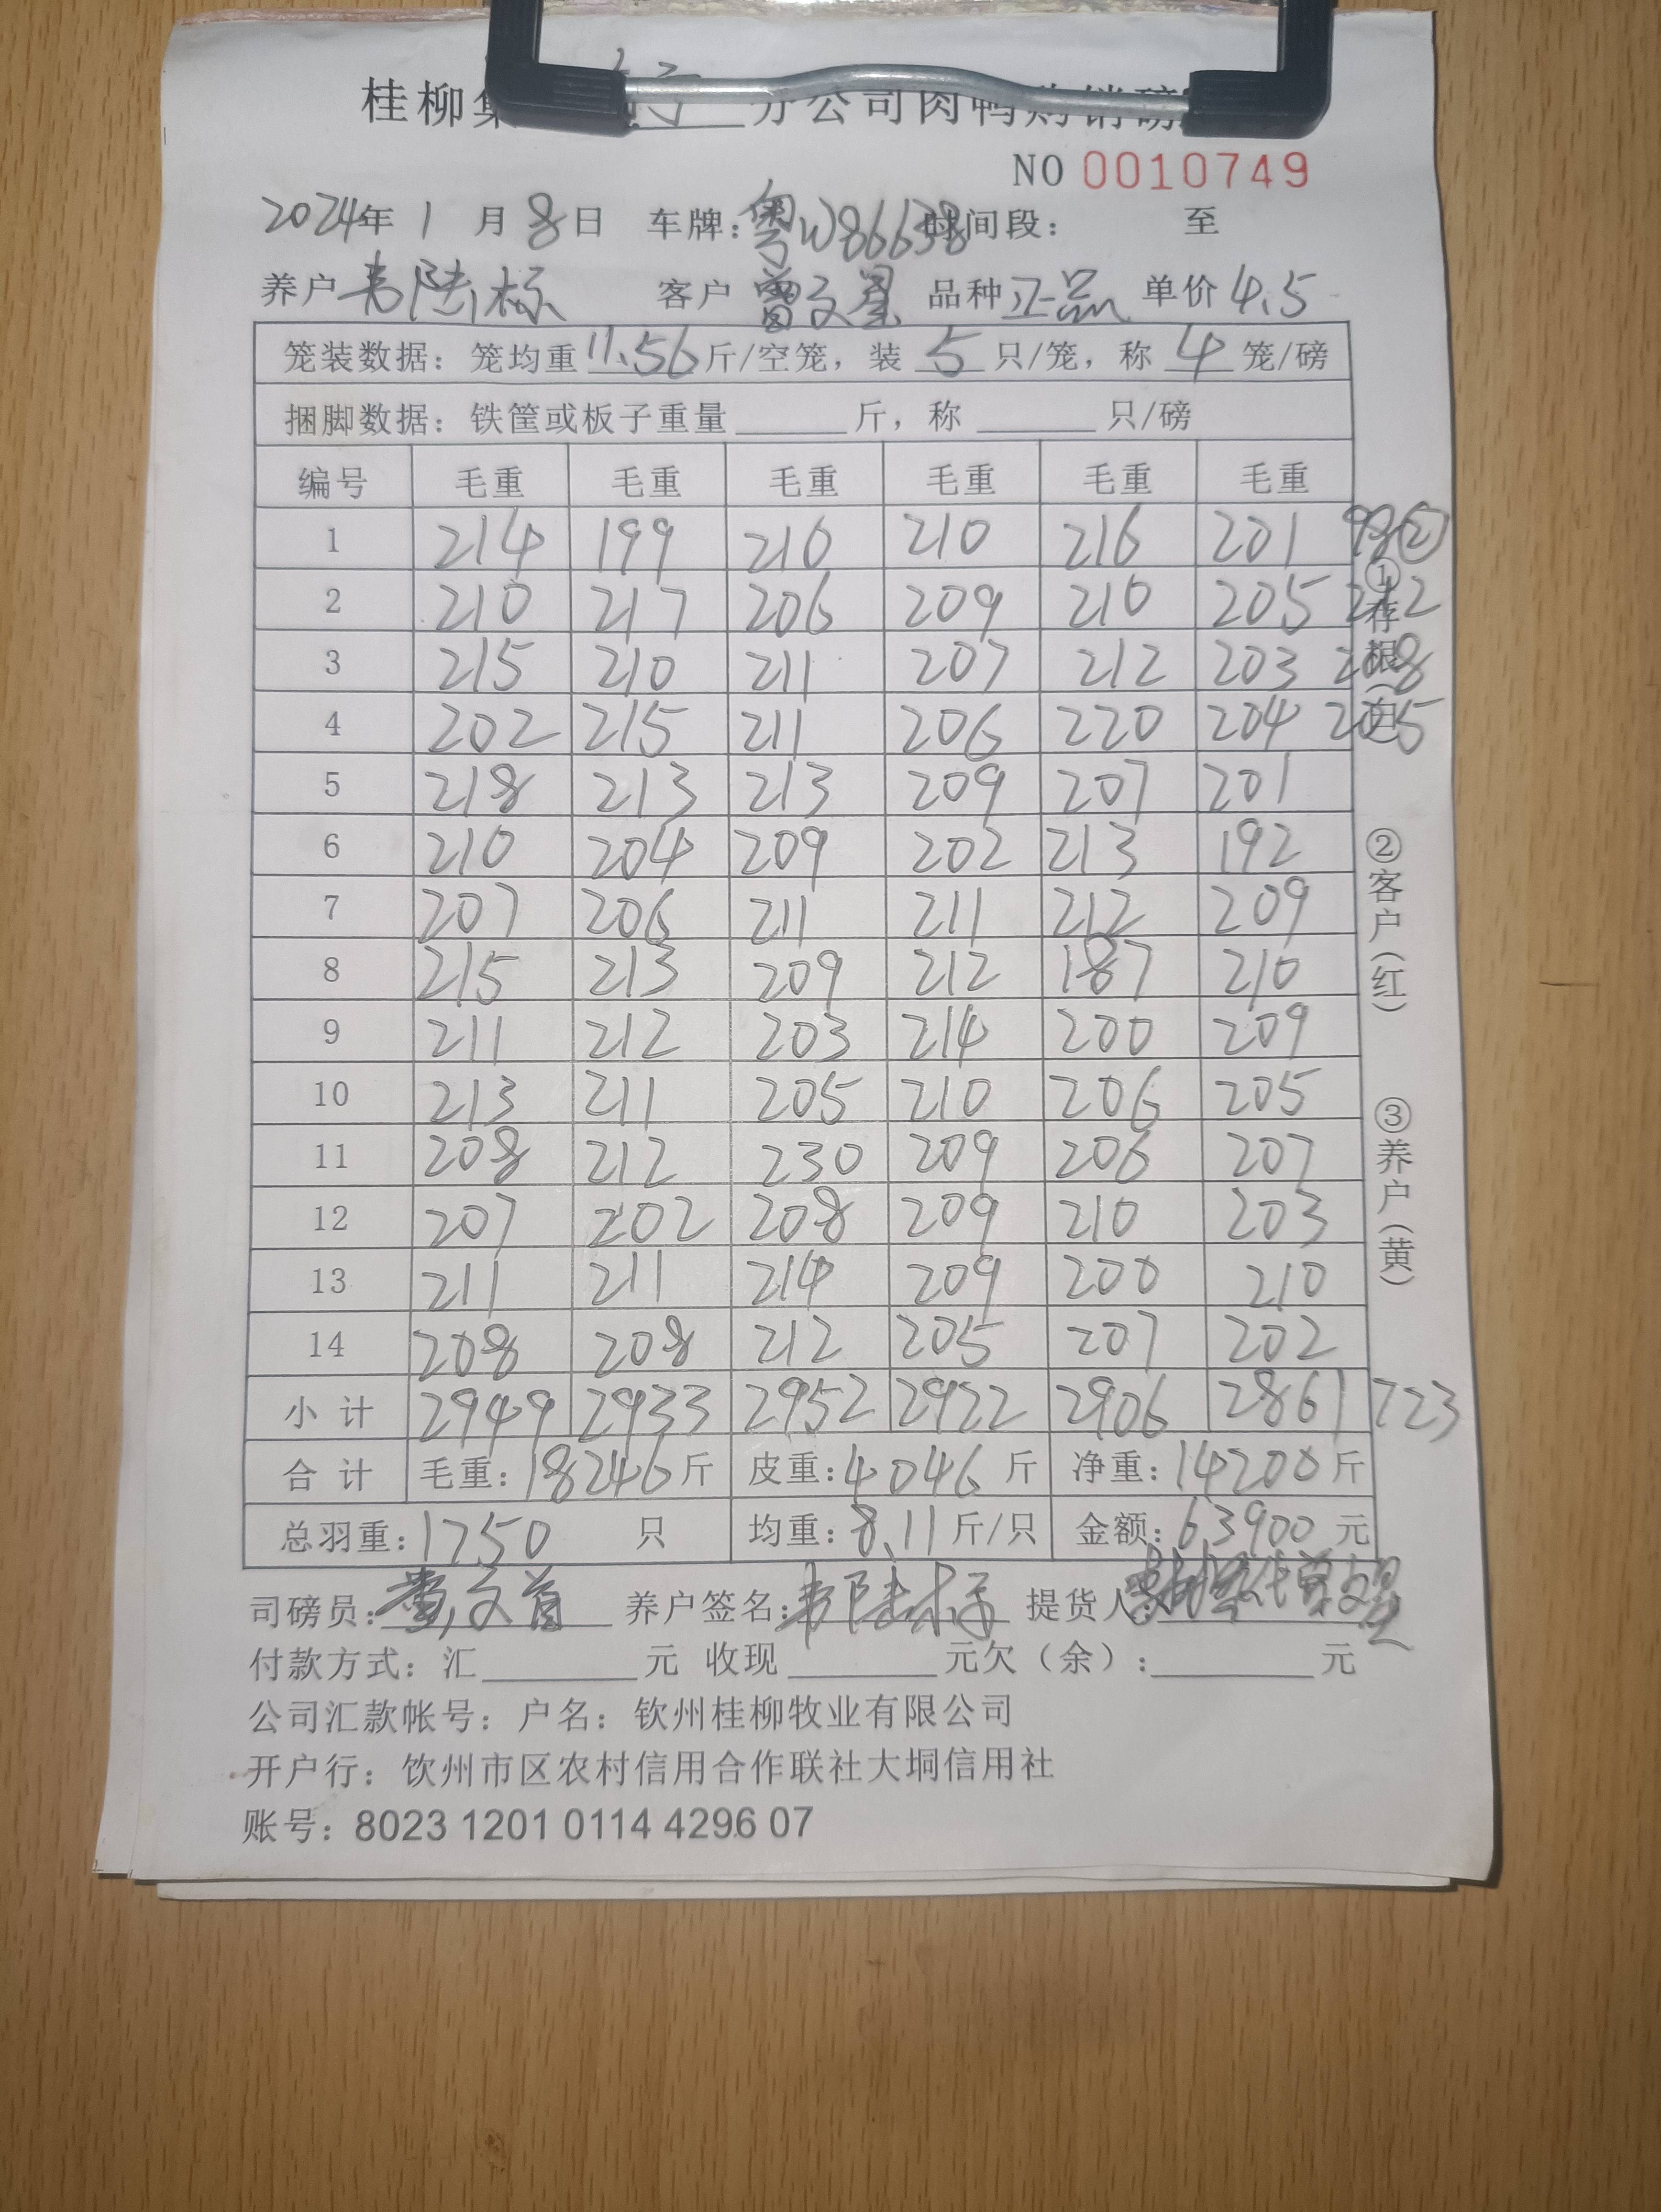 桂柳集 分公司肉鸭购销磅
NO 0010749
2024年 1 月 8 日 车牌：粤W86638 时间段： 至
养户 韦陆标 客户 曾文星 品种 正品 单价 4.5
笼装数据：笼均重 11.56 斤/空笼，装 5 只/笼，称 4 笼/磅
捆脚数据：铁筐或板子重量______斤，称______只/磅
编号 毛重 毛重 毛重 毛重 毛重 毛重
1 214 199 210 210 216 201 98②
2 210 217 206 209 210 205 212
3 215 210 211 207 212 203 208
4 202 215 211 206 220 204 205
5 218 213 213 209 207 201
6 210 204 209 202 213 192
7 207 206 211 211 212 209
8 215 213 209 212 187 210
9 211 212 203 214 200 209
10 213 211 205 210 206 205
11 208 212 230 209 206 207
12 207 202 208 209 210 203
13 211 211 214 209 200 210
14 208 208 212 205 207 202
小计 2949 2933 2952 2922 2906 2861 723
合计 毛重：18246斤 皮重：4046 斤 净重：14200斤
总羽重：1750 只 均重：8.11斤/只 金额：63900元
司磅员： 养户签名：韦陆标 提货人：
付款方式：汇______元 收现______元欠（余）：______元
公司汇款帐号：户名：钦州桂柳牧业有限公司
开户行：饮州市区农村信用合作联社大垌信用社
账号：8023 1201 0114 4296 07
①存根（白）
②客户（红）
③养户（黄）